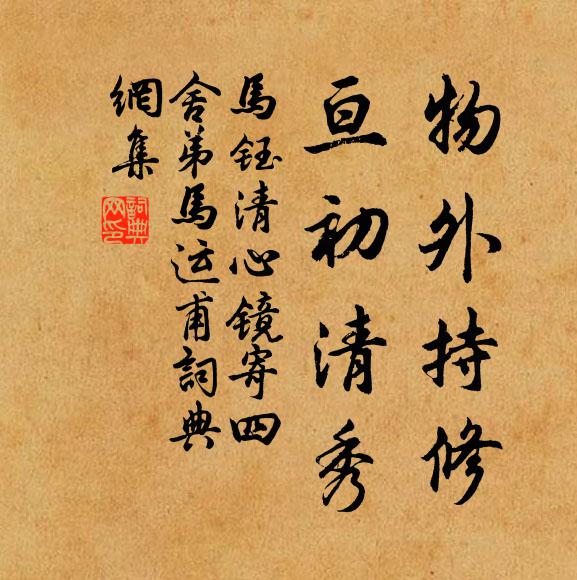 物外持修
亘初清秀
馬鈺清心鏡寄四
舍弟馬运甫詞典
網集
詞典
网印